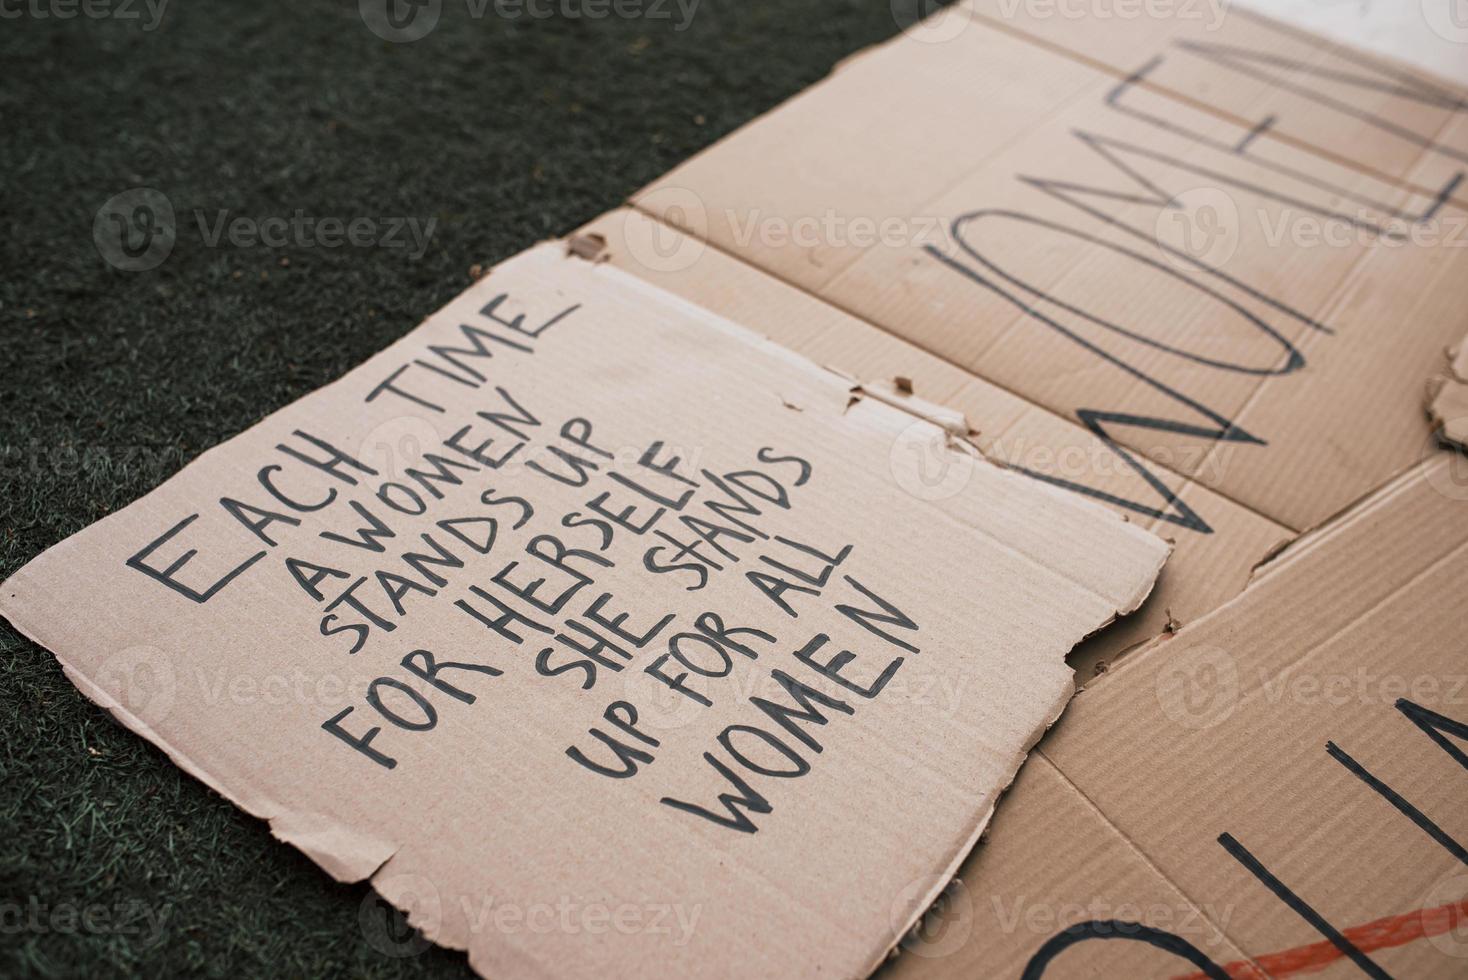 EACH TIME
A WOMEN
STANDS UP
FOR HERSELF
SHE STANDS
UP FOR ALL
WOMEN
WOMEN